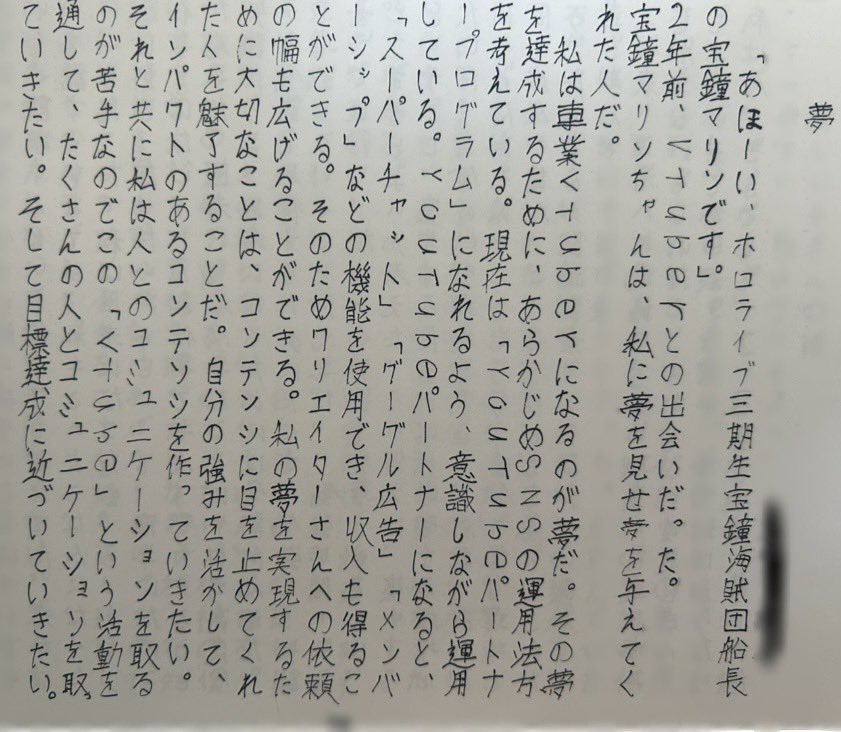 夢
「あほーい、ホロライブ三期生宝鐘海賊団船長
の宝鐘マリンです」。
2年前、VTuberとの出会いだ。た。
宝鐘マリンちゃんは、私に夢を見せ夢を与えてく
れた人だ。
私は専業VTuberになるのが夢だ。その夢
を達成するために、あらかじめSNSの運用法方
を考えている。現在は「YouTubeパートナ
ープログラム」になれるよう、意識しながら運用
している。YouTubeパートナーになると、
「スーパーチャット」「グーグル広告」「メンバ
ーシップ」などの機能を使用でき、収入も得るこ
とができる。そのためクリエイターさんへの依頼
の幅も広げることができる。私の夢を実現するた
めに大切なことは、コンテンツに目を止めてくれ
た人を魅了することだ。自分の強みを活かして、
インパクトのあるコンテンツを作っていきたい。
それと共に私は人とのコミュニケーションを取る
のが苦手なのでこの「VTube」という活動を
通して、たくさんの人とコミュニケーションを取っ
ていきたい。そして目標達成に近づいていきたい。